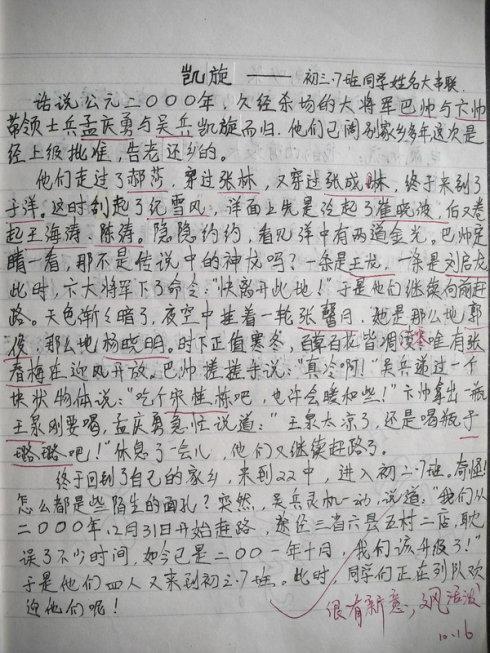 凯旋 —— 初三.7班同学姓名大串联.
话说公元二000年，久经杀场的大将军巴帅与卞帅
带领士兵孟庆勇与吴兵凯旋而归.他们已阔别家乡多年这次是
经上级批准，告老还乡的。
他们走过了郝莎，穿过张林，又穿过张成林，终于来到了
于洋。这时刮起了纪雪风，洋面上先是泛起了崔晓波，后又卷
起王海涛、陈涛。隐隐约约，看见洋中有两道金光。巴帅定
睛一看，那不是传说中的神龙吗？一条是王龙，一条是刘启龙
此时，卞大将军下了命令："快离开此地！"于是他们继续向前赶
路。天色渐渐暗了，夜空中挂着一轮张馨月，她是那么地郭
俊，那么地杨晓明。时下正值寒冬，百草百花皆凋零唯有张
春梅在迎风开放。巴帅搓搓手说："真冷啊！"吴兵递过一个
块状物体说："吃个宋桂栋吧，也许会暖和些！"卞帅拿出一瓶
王泉刚要喝，孟庆勇急忙说道："王泉太凉了，还是喝瓶于
璐璐吧！"休息了一会儿，他们又继续赶路了。
终于回到了自己的家乡，来到22中，进入初二.7班。奇怪！
怎么都是些陌生的面孔？突然，吴兵灵机一动，说道："我们从
二000年12月31日开始赶路，途经三省六县五村二店，耽
误了不少时间，如今已是二00一年十月，我们该升级了！"
于是他们四人又来到初三.7班。此时，同学们正在列队欢
迎他们呢！
很有新意，文风活泼
10.16